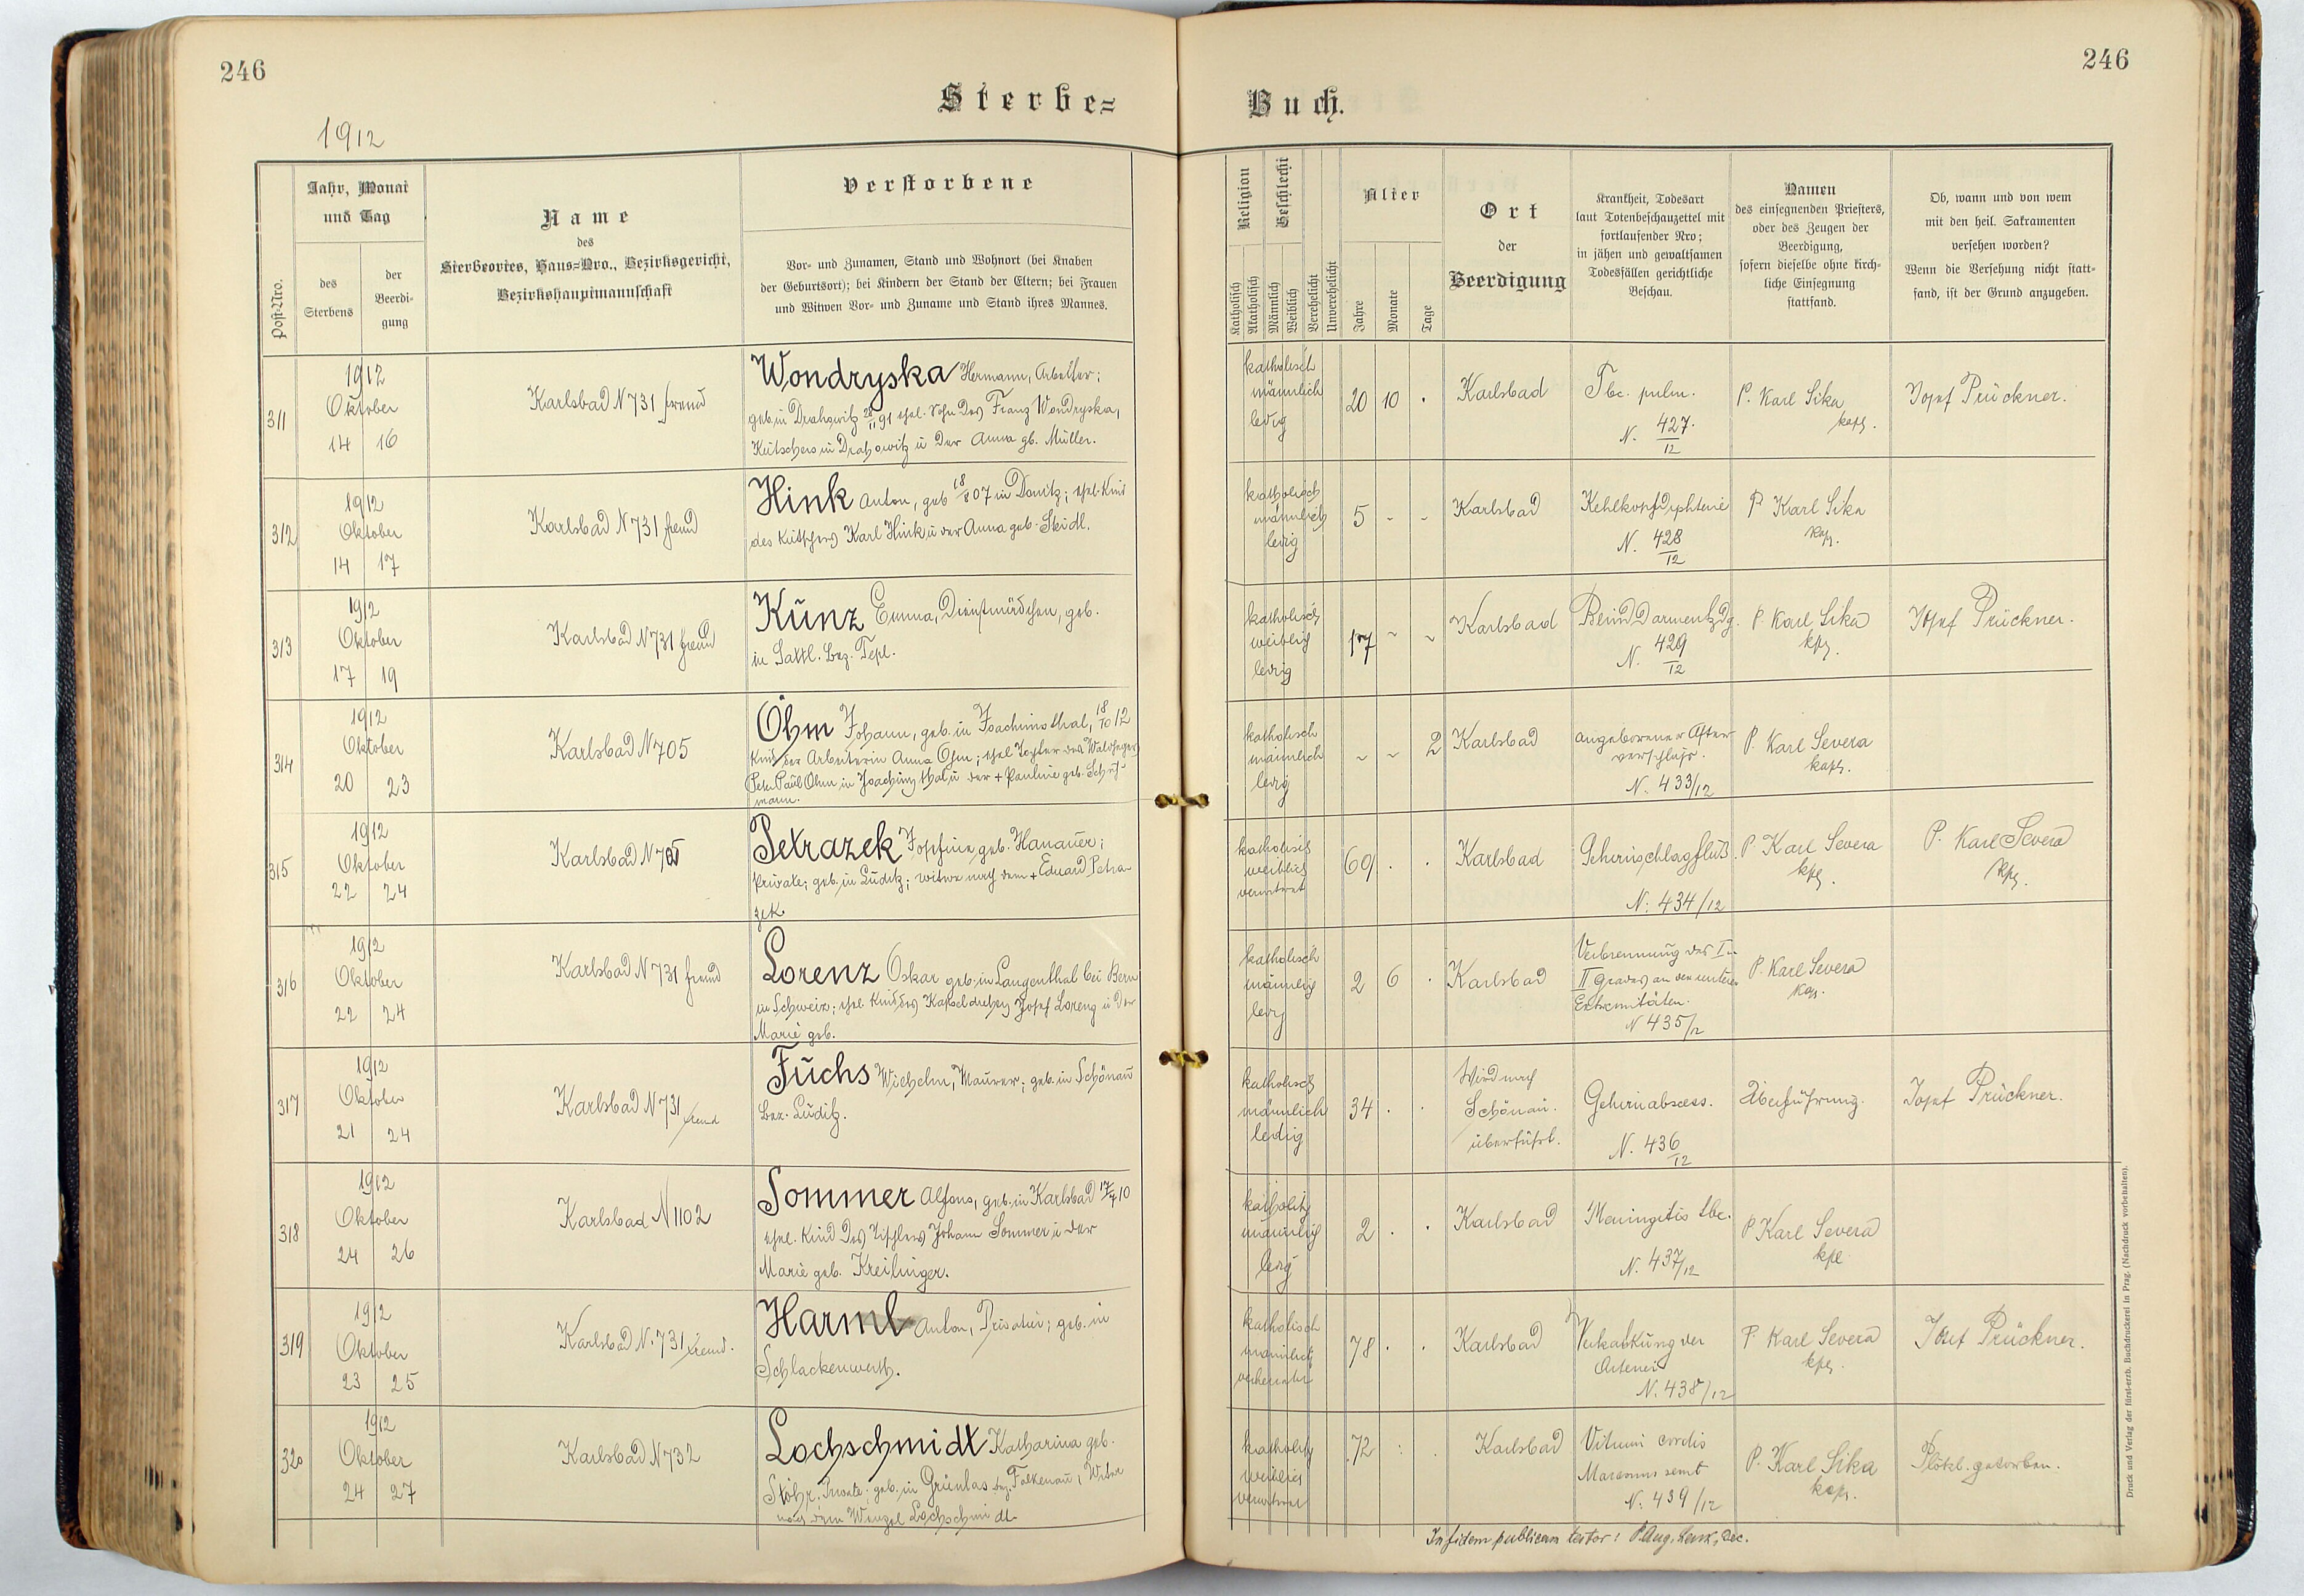 246
246
Sterbe=
Buch.
1912
Post-Nro.
Jahr, Monat
und Tag
des
Sterbens
der
Beerdi-
gung
Name
des
Sterbeortes, Haus=Nro., Bezirksgericht,
Bezirkshauptmannschaft
Verstorbene
Vor- und Zunamen, Stand und Wohnort (bei Knaben
der Geburtsort); bei Kindern der Stand der Eltern; bei Frauen
und Witwen Vor- und Zuname und Stand ihres Mannes.
Religion
Katholisch
Akatholisch
Geschlecht
Männlich
Weiblich
Verehelicht
Unverehelicht
Alter
Jahre
Monate
Tage
Ort
der
Beerdigung
Krankheit, Todesart
laut Totenbeschauzettel mit
fortlaufender Nro;
in jähen und gewaltsamen
Todesfällen gerichtliche
Beschau.
Namen
des einsegnenden Priesters,
oder des Zeugen der
Beerdigung,
sofern dieselbe ohne kirch-
liche Einsegnung
stattfand.
Ob, wann und von wem
mit den heil. Sakramenten
versehen worden?
Wenn die Versehung nicht statt-
fand, ist der Grund anzugeben.
311
1912
Oktober
14 16
Karlsbad N 731 fremd
Wondryska Hermann, Arbeiter;
geb. in Drahowitz 28/II 91 ehel. Sohn des Franz Wondryska,
Kutschers in Drahowitz u der Anna gb. Müller.
katholisch
männlich
ledig
20 10 .
Karlsbad
Tbc. pulm.
N. 427/12
P. Karl Sika
kapl.
Josef Prückner.
312
1912
Oktober
14 17
Karlsbad N 731 fremd
Hink Anton, geb 18/8 07 in Donitz; ehel. Kind
des Kutschers Karl Hink u der Anna geb. Seidl.
katholisch
männlich
ledig
5 - -
Karlsbad
Kehlkopfdiphterie
N. 428/12
P Karl Sika
kap.
313
1912
Oktober
17 19
Karlsbad N 731 fremd
Kunz Emma, Dienstmädchen, geb.
in Sattl. Bez. Tepl.
katholisch
weiblich
ledig
17 ~ ~
Karlsbad
Blinddarmentzdg.
N. 429/12
P. Karl Sika
kpl.
Josef Prückner.
314
1912
Oktober
20 23
Karlsbad N 705
Öhm Johann, geb. in Joachimsthal, 18/10 12
Kind der Arbeiterin Anna Öhm; ehel Tochter des Waldheger
Peter Paul Öhm in Joachimsthal u der + Pauline geb.
mann.
katholisch
männlich
ledig
~ ~ 2
Karlsbad
angeborener After
verschluss.
N. 433/12
P. Karl Severa
kapl.
315
1912
Oktober
22 24
Karlsbad N
Petrazek Josefine, geb. Hanauer;
Private; geb. in Luditz; witwe nach dem + Eduard Petra-
zek
katholisch
weiblich
verwitwet
69 . .
Karlsbad
Gehirnschlagfluß.
N: 434/12
P Karl Severa
kpl.
P. Karl Severa
kpl.
316
1912
Oktober
22 24
Karlsbad N 731 fremd
Lorenz Oskar geb. in Langenthal bei Bern
in Schweiz; ehel Kind des Kapseldrehers Josef Lorenz u der
Marie geb.
katholisch
männlich
ledig
2 6 .
Karlsbad
Verbrennung des I u
II Grades an den unteren
Extremitäten.
N 435/12
P. Karl Severa
kap.
317
1912
Oktober
21 24
Karlsbad N 731 fremd
Fuchs Wilhelm, Maurer; geb. in Schönau
Bez. Luditz.
katholisch
männlich
ledig
34 . .
Wird nach
Schönau.
überführt.
Gehirnabscess.
N. 436/12
Überführung.
Josef Prückner.
318
1912
Oktober
24 26
Karlsbad N 1102
Sommer Alfons, geb. in Karlsbad 17/4 10
ehel. Kind des Tischlers Johann Sommer u der
Marie geb. Kreilinger.
katholisch
männlich
ledig
2 . .
Karlsbad
Meningitis tbc.
N. 437/12
P Karl Severa
kpl
319
1912
Oktober
23 25
Karlsbad N. 731 fremd.
Harml Anton, Privatier; geb. in
Schlackenwerth.
katholisch
männlich
verheiratet
78 . .
Karlsbad
Verkalkung der
Arterien
N. 438/12
P Karl Severa
kpl.
Josef Prückner.
320
1912
Oktober
24 27
Karlsbad N 732
Lochschmidt Katharina geb.
Stöhr. Private; geb. in Grünlas bez. Falkenau, Witwe
nach dem Wenzel Lochschmidt
katholisch
weiblich
verwitwet
72
Karlsbad
Vitium cordis
Marasmus
N. 439/12
P. Karl Sika
kap.
Plötzl. gestorben.
In fidem publicam testor: P. Aug. Dec.
Druck und Verlag der fürst-erzb. Buchdruckerei in Prag. (Nachdruck vorbehalten).